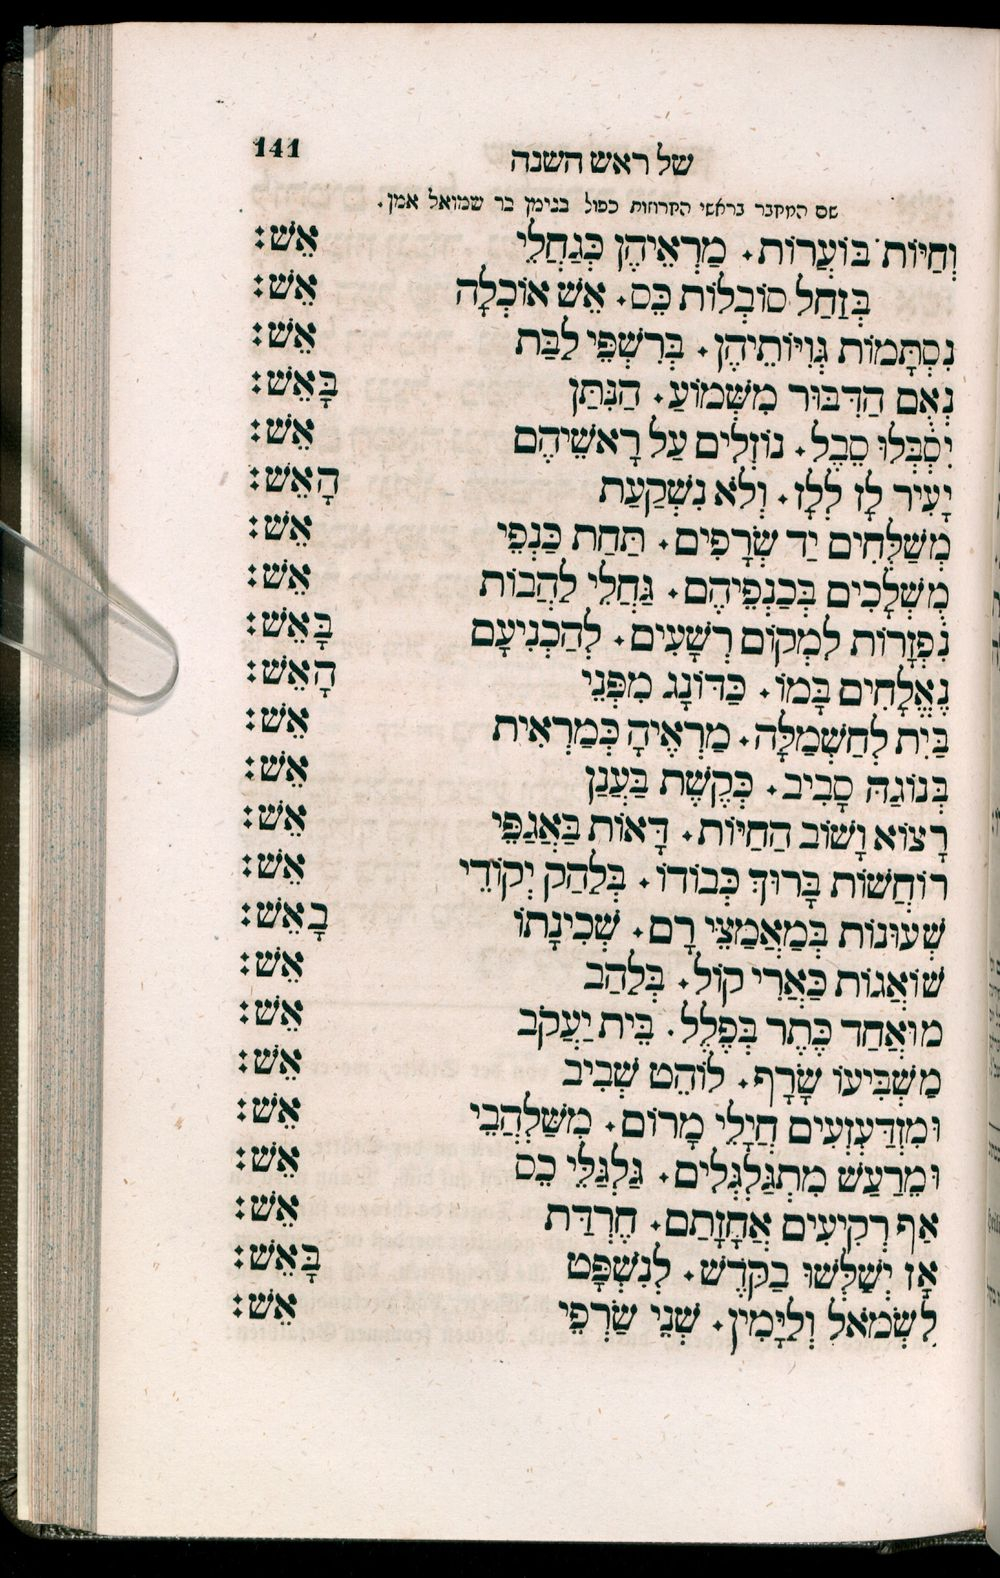 141
של ראש השנה
שם המחבר בראשי החרוזות כפול בנימן בר שמואל אמן.
וְחַיּוֹת בּוֹעֲרוֹת. מַרְאֵיהֶן כְּגַחֲלֵי אֵשׁ:
בְּזַחַל סוֹבְלוֹת כֵּס. אֵשׁ אוֹכְלָה אֵשׁ:
נִסְתָּמוֹת גְּוִיּוֹתֵיהֶן. בְּרִשְׁפֵּי לַבַּת אֵשׁ:
נְאֻם הַדִּבּוּר מִשְּׁמוֹעַ. הַנִּתַּן בָּאֵשׁ:
יִסְבְּלוּ סֵבֶל. נוֹזְלִים עַל רָאשֵׁיהֶם אֵשׁ:
יָעִיר לָן לְלָן. וְלֹא נִשְׁקַעַת הָאֵשׁ:
מְשַׁלְּחִים יַד שְׂרָפִים. תַּחַת כַּנְפֵי אֵשׁ:
מְשְׁלָכִים בְּכַנְפֵיהֶם. גַּחֲלֵי לַהֲבוֹת אֵשׁ:
נִפְזָרוֹת לִמְקוֹם רְשָׁעִים. לְהַכְנִיעָם בָּאֵשׁ:
נֶאֱלָחִים בָּמוֹ. כַּדּוֹנָג מִפְּנֵי הָאֵשׁ:
בַּיִת לְחַשְׁמַלָּה. מַרְאֶיהָ כְּמַרְאִית אֵשׁ:
בְּנוֹגַהּ סָבִיב. כְּקֶשֶׁת בַּעֲנַן אֵשׁ:
רָצוֹא וָשׁוֹב הַחַיּוֹת. דָּאוֹת בַּאֲגַפֵּי אֵשׁ:
רוֹחֲשׁוֹת בָּרוּךְ כְּבוֹדוֹ. בְּלַהַק יְקוֹדֵי אֵשׁ:
שְׁעוּנוֹת בְּמַאֲמַצֵּי רָם. שְׁכִינָתוֹ בָאֵשׁ:
שׁוֹאֲגוֹת כַּאֲרִי קוֹל. בְּלַהַב אֵשׁ:
מוּאֲחַד כֶּתֶר בְּפֶלֶל. בֵּית יַעֲקֹב אֵשׁ:
מַשְׁבִּיעוֹ שָׂרָף. לוֹהֵט שְׁבִיב אֵשׁ:
וּמִזְדַּעְזְעִים חֲיָלֵי מָרוֹם. מִשַּׁלְהֲבֵי אֵשׁ:
וּמֵרַעַשׁ מִתְגַּלְגְּלִים. גַּלְגַּלֵּי כֵס אֵשׁ:
אַף רְקִיעִים אֲחָזָתַם. חֶרְדַּת אֵשׁ:
אָז יְשַׁלְּשׁוּ בַקֹּדֶשׁ. לְנִשְׁפָּט בָּאֵשׁ:
לִשְׂמֹאל וְלַיָּמִין. שְׁנֵי שַׂרְפֵי אֵשׁ: